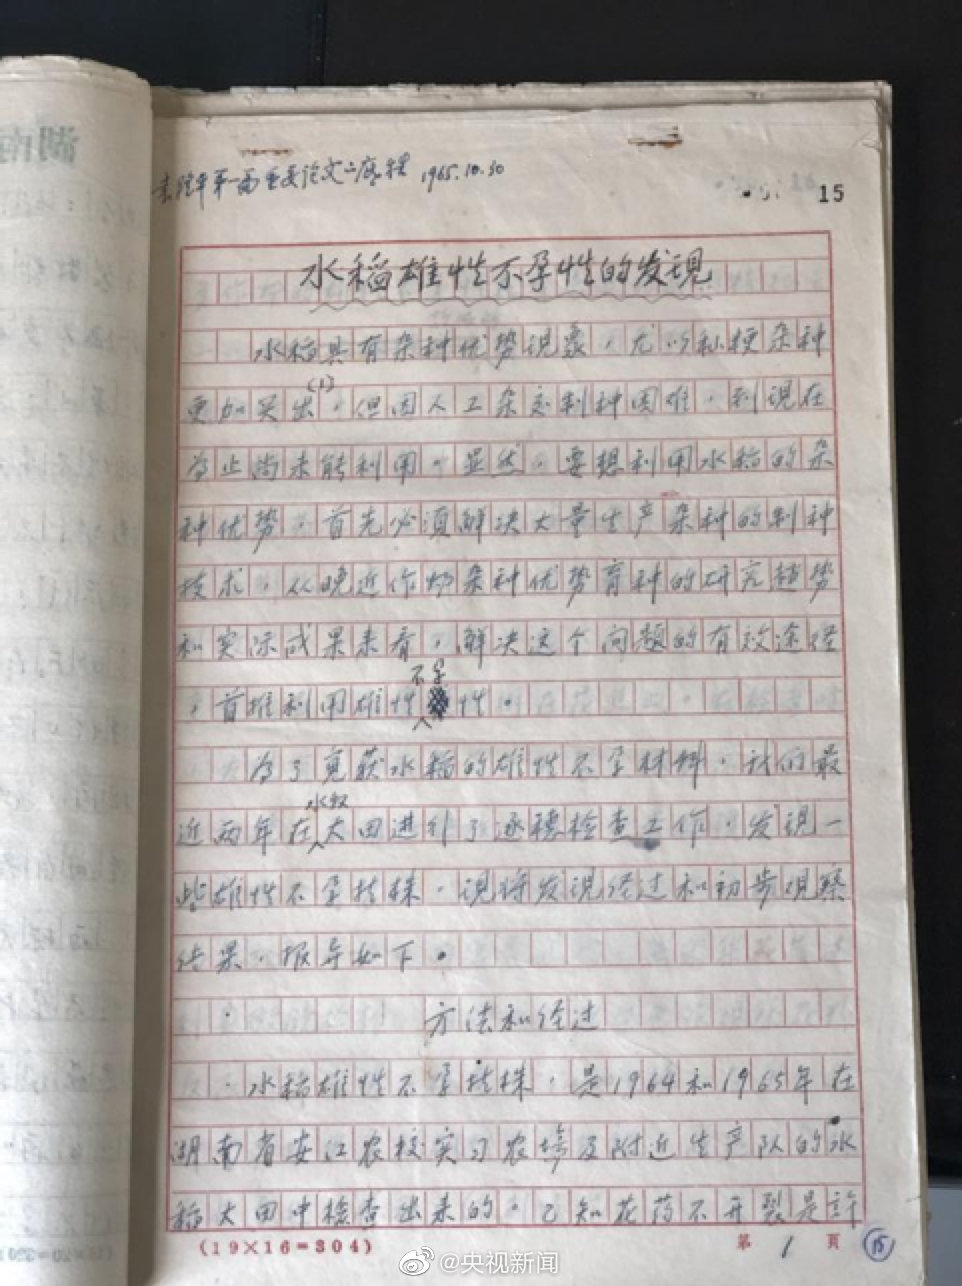 袁隆平第一篇重要论文二底稿 1965.10.30
15
水稻雄性不孕性的发现
水稻具有杂种优势现象，尤以籼粳杂种
更加突出(1)，但因人工杂交制种困难，到现在
为止尚未能利用。显然，要想利用水稻的杂
种优势，首先必须解决大量生产杂种的制种
技术，从晚近作物杂种优势育种的研究趋势
和实际成果来看，解决这个问题的有效途径
，首推利用雄性不孕性。
为了觅获水稻的雄性不孕材料，我们最
近两年在水稻大田进行了逐穗检查工作，发现一
些雄性不孕植株，现将发现经过和初步观察
结果，报导如下。
方法和经过
水稻雄性不孕植株，是1964和1965年在
湖南省安江农校实习农场及附近生产队的水
稻大田中检查出来的，已知花药不开裂是许
(19×16=304)
第 1 页
15
@央视新闻
湖南